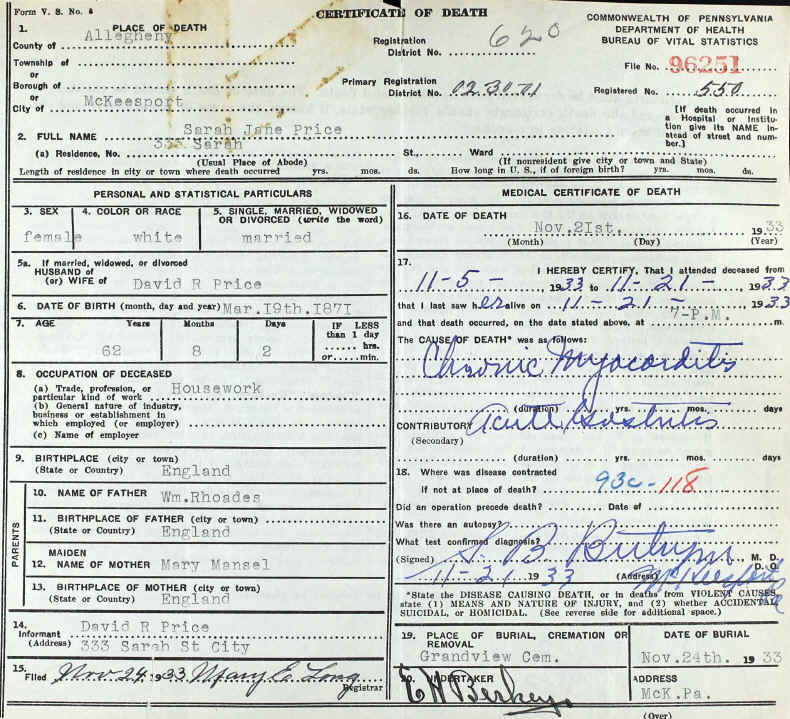 Form V. S. No. 5
CERTIFICATE OF DEATH
COMMONWEALTH OF PENNSYLVANIA
DEPARTMENT OF HEALTH
BUREAU OF VITAL STATISTICS
1. PLACE OF DEATH
County of Allegheny
Township of
or
Borough of
or
City of McKeesport
Registration District No. 620
Primary Registration District No. 023001
File No. 96251
Registered No. 550
[If death occurred in a Hospital or Institution give its NAME instead of street and number.]
2. FULL NAME Sarah Jane Price
(a) Residence, No. 333 Sarah St., Ward
(Usual Place of Abode) (If nonresident give city or town and State)
Length of residence in city or town where death occurred yrs. mos. ds. How long in U. S., if of foreign birth? yrs. mos. ds.
PERSONAL AND STATISTICAL PARTICULARS
3. SEX
female
4. COLOR OR RACE
white
5. SINGLE, MARRIED, WIDOWED OR DIVORCED (write the word)
married
5a. If married, widowed, or divorced
HUSBAND of
(or) WIFE of David R Price
6. DATE OF BIRTH (month, day and year) Mar.19th.1871
7. AGE Years Months Days IF LESS than 1 day
62 8 2 hrs. or min.
8. OCCUPATION OF DECEASED
(a) Trade, profession, or particular kind of work Housework
(b) General nature of industry, business or establishment in which employed (or employer)
(c) Name of employer
9. BIRTHPLACE (city or town)
(State or Country) England
PARENTS
10. NAME OF FATHER Wm.Rhoades
11. BIRTHPLACE OF FATHER (city or town)
(State or Country) England
12. MAIDEN NAME OF MOTHER Mary Mansel
13. BIRTHPLACE OF MOTHER (city or town)
(State or Country) England
14. Informant David R Price
(Address) 333 Sarah St City
15. Filed Nov 24 1933 Mary E. Long
Registrar
MEDICAL CERTIFICATE OF DEATH
16. DATE OF DEATH Nov.21st. 1933
(Month) (Day) (Year)
17. I HEREBY CERTIFY, That I attended deceased from
11-5- 1933 to 11-21- 1933
that I last saw her alive on 11-21- 1933
and that death occurred, on the date stated above, at 7-P.M. m.
The CAUSE OF DEATH* was as follows:
Chronic Myocarditis
(duration) yrs. mos. days
CONTRIBUTORY Acute Gastritis
(Secondary)
(duration) yrs. mos. days
18. Where was disease contracted
if not at place of death? 93c-118
Did an operation precede death? Date of
Was there an autopsy?
What test confirmed diagnosis?
(Signed) S. B. M. D.
D. O.
11-21 1933 (Address) McKeesport
*State the DISEASE CAUSING DEATH, or in deaths from VIOLENT CAUSES, state (1) MEANS AND NATURE OF INJURY, and (2) whether ACCIDENTAL, SUICIDAL, or HOMICIDAL. (See reverse side for additional space.)
19. PLACE OF BURIAL, CREMATION OR REMOVAL
Grandview Cem.
DATE OF BURIAL
Nov.24th. 1933
20. UNDERTAKER
E H Berkey
ADDRESS
McK.Pa.
(Over)